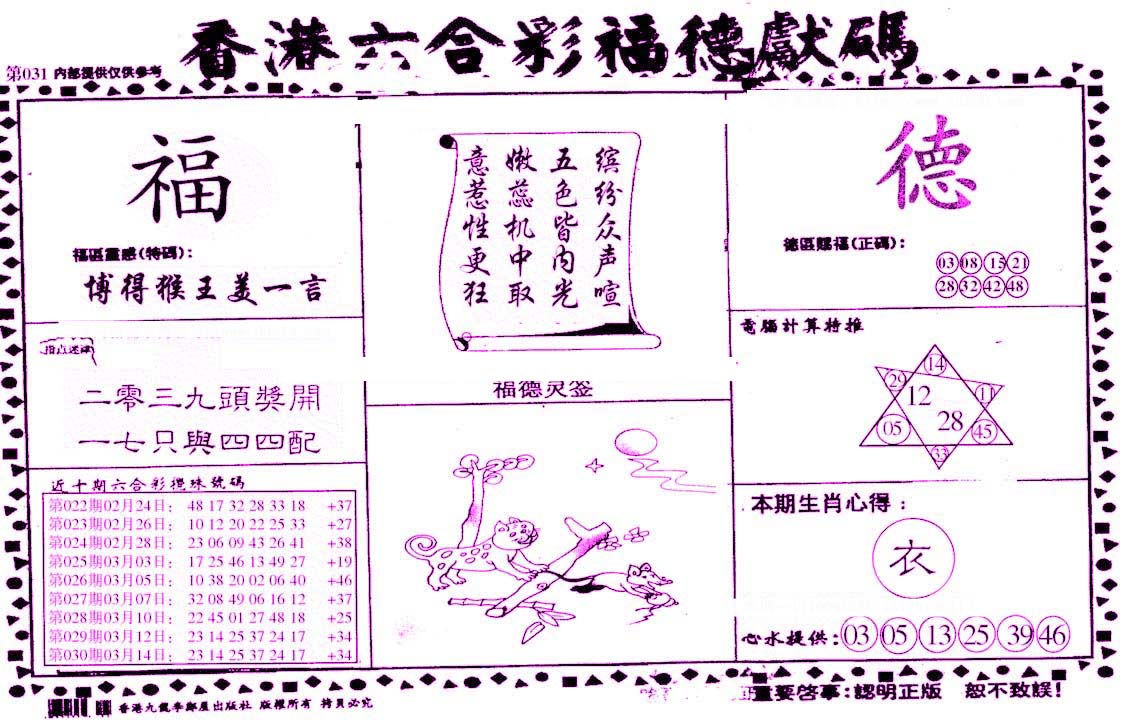 香港六合彩福德獻碼
第031 内部提供仅供参考
福
福區靈感(特碼):
博得猴王美一言
缤纷众声喧
五色皆内光
嫩蕊机中取
意惹性更狂
德
德區賜福(正碼):
03 08 15 21
28 32 42 48
指点迷津
二零三九頭獎開
一七只與四四配
福德灵签
電腦計算特推
14
29 11
12
28
05 45
33
近十期六合彩攪珠號碼
第022期02月24日: 48 17 32 28 33 18 +37
第023期02月26日: 10 12 20 22 25 33 +27
第024期02月28日: 23 06 09 43 26 41 +38
第025期03月03日: 17 25 46 13 49 27 +19
第026期03月05日: 10 38 20 02 06 40 +46
第027期03月07日: 32 08 49 06 16 12 +37
第028期03月10日: 22 45 01 27 48 18 +25
第029期03月12日: 23 14 25 37 24 17 +34
第030期03月14日: 23 14 25 37 24 17 +34
本期生肖心得:
衣
心水提供: 03 05 13 25 39 46
重要啓事:認明正版 恕不致誤!
香港九龍李鄭屋出版社 版權所有 拷貝必究